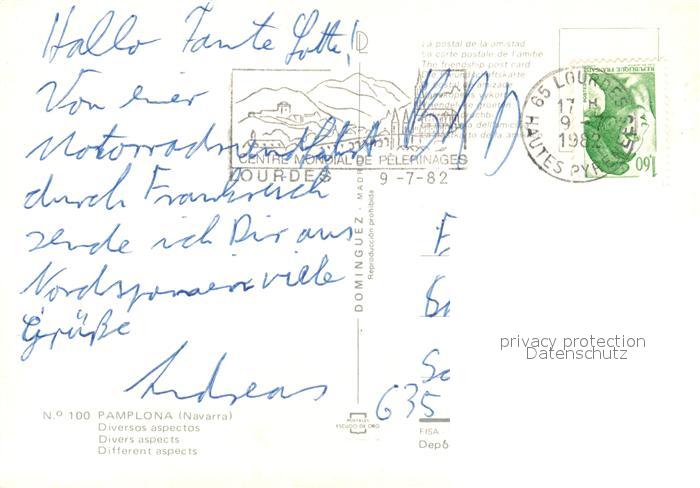 Hallo Tante Lotte!
Von einer
Motorradrundfahrt
durch Frankreich
sende ich Dir aus
Nordspanien viele
Grüße
Andreas
La postal de la amistad
La carte postale de l'amitié
The friendship post card
CENTRE MONDIAL DE PÈLERINAGES
LOURDES 9-7-82
65 LOURDES
17 H
9-
1982
HAUTES PYR
REPUBLIQUE FRANÇAISE
1,60
DOMINGUEZ - MADR
Reproducción prohibida
BRD
635
privacy protection
Datenschutz
N.º 100 PAMPLONA (Navarra)
Diversos aspectos
Divers aspects
Different aspects
POSTALES
ESCUDO DE ORO
FISA
Dep